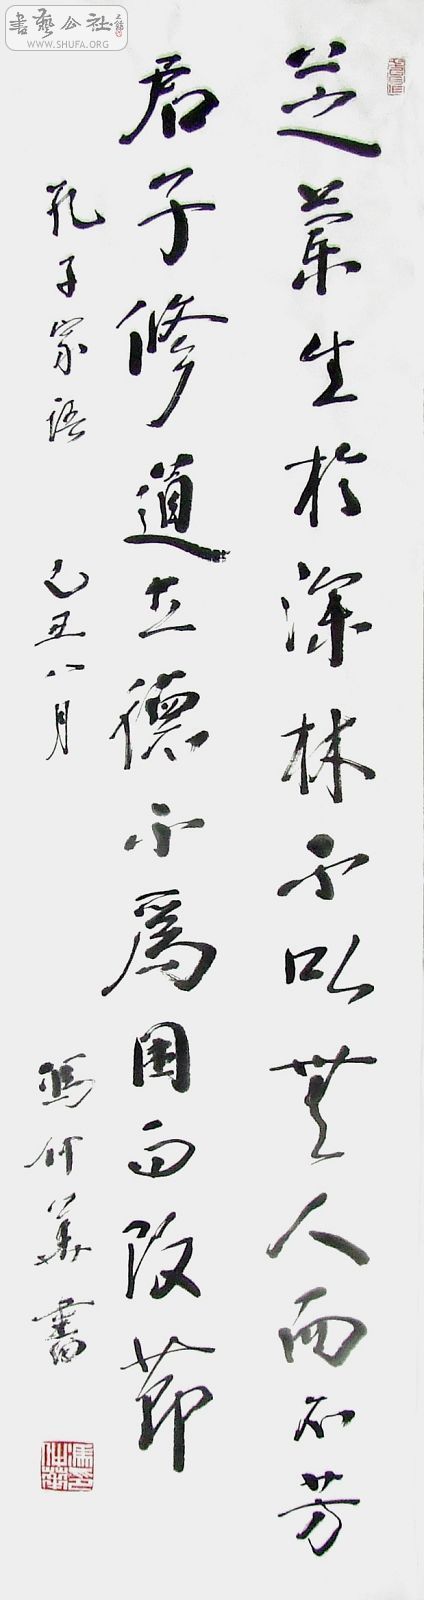 芝蘭生於深林不以無人而不芳
君子修道立德不為困而改節
孔子家語 己丑八月 馮竹華書
書藝公社
WWW.SHUFA.ORG